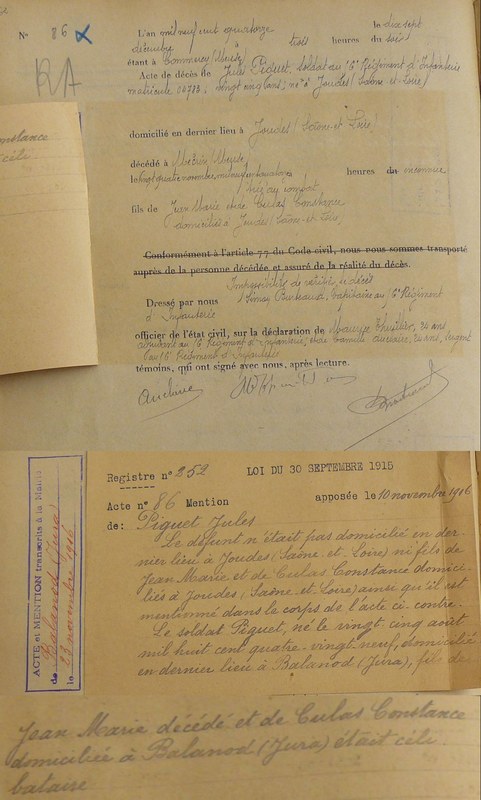 N° 86
RA
L'an mil neuf cent quatorze le dix sept
décembre à trois heures du soir
étant à Commercy (Meuse)
Acte de décès de Jules Piguet, soldat au 16e Régiment d'Infanterie
matricule 00788, vingt cinq ans, né à Joudes (Saône-et-Loire)
domicilié en dernier lieu à Joudes (Saône-et-Loire)
décédé à (Meuse)
le vingt quatre novembre, mil neuf cent quatorze heures du inconnue
tué au combat
fils de Jean Marie et de Culas Constance
domiciliés à Joudes (Saône-et-Loire)
Conformément à l'article 77 du Code civil, nous nous sommes transporté
auprès de la personne décédée et assuré de la réalité du décès.
Impossibilité de vérifier le décès
Dressé par nous Capitaine au 16e Régiment
d'Infanterie
officier de l'état civil, sur la déclaration de Maurice Thuillier, 24 ans
au 16e Régiment d'Infanterie, et de Camille Auclaire, 24 ans, sergent
au 16e Régiment d'Infanterie
témoins, qui ont signé avec nous, après lecture.
Auclaire
nstance
céli
Registre n° 252 LOI DU 30 SEPTEMBRE 1915
Acte n° 86 Mention apposée le 10 novembre 1916
de: Piguet Jules
Le défunt n'était pas domicilié en der
nier lieu à Joudes (Saône-et-Loire) ni fils de
Jean Marie et de Culas Constance domici-
liés à Joudes (Saône-et-Loire) ainsi qu'il est
mentionné dans le corps de l'acte ci-contre.
Le soldat Piguet, né le vingt-cinq août
mil huit cent quatre-vingt neuf, domicilié
en dernier lieu à Balanod (Jura), fils de
ACTE et MENTION transcrits à la Mairie
de Balanod (Jura)
le 23 novembre 1916
Jean Marie décédé et de Culas Constance
domiciliée à Balanod (Jura) était céli-
bataire